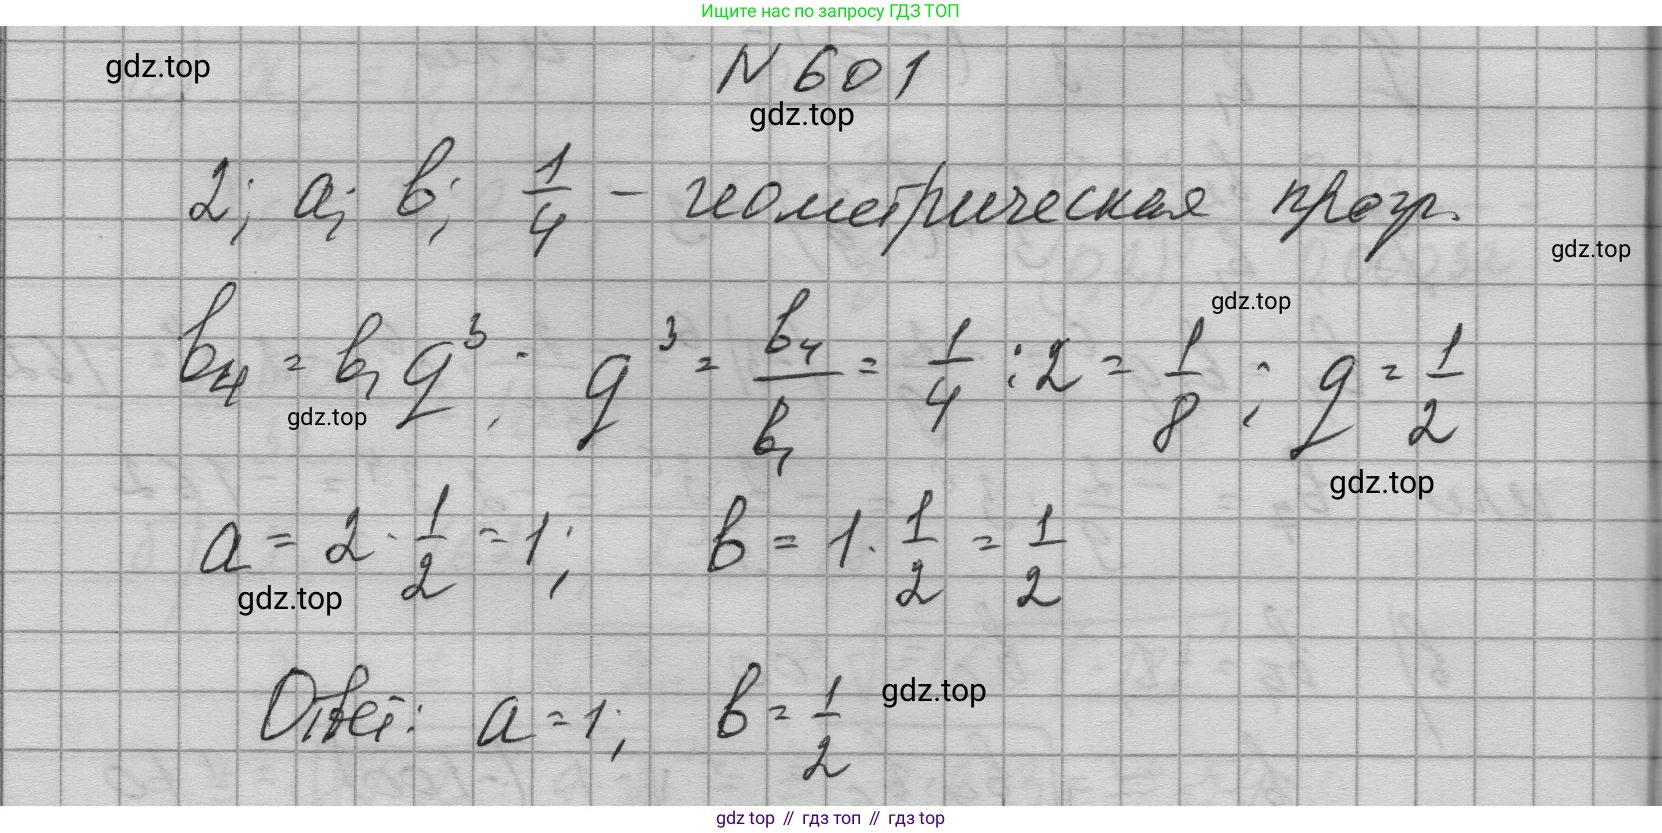 Ищите нас по запросу ГДЗ ТОП
gdz.top
N 601
gdz.top
2; a; b; 1/4 – геометрическая прогр.
gdz.top
gdz.top
b₄ = b₁q³; q³ = b₄/b₁ = 1/4 : 2 = 1/8; q = 1/2
gdz.top
gdz.top
a = 2 · 1/2 = 1; b = 1 · 1/2 = 1/2
gdz.top
Ответ: a = 1; b = 1/2
gdz.top
gdz top // гдз топ // гдз top